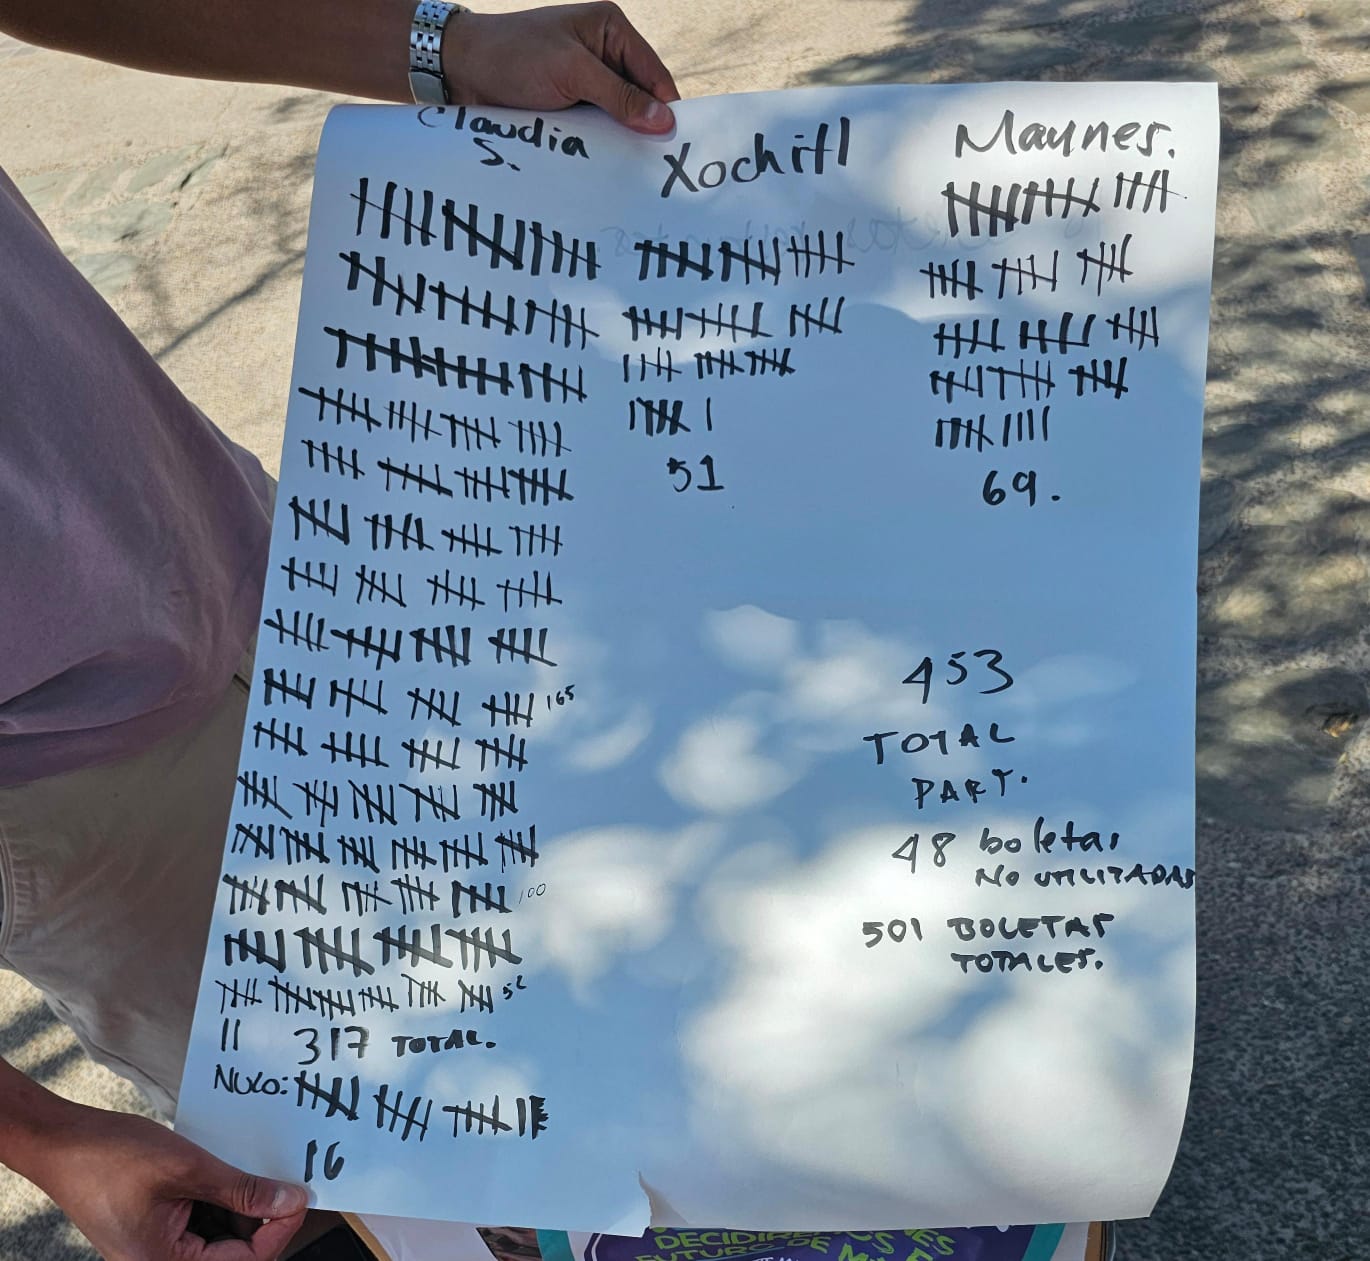 Claudia
S.
Xochitl
Maynes.
51
69.
165
100
52
317 TOTAL.
NULO:
16
453
TOTAL
PART.
48 boletas
NO UTILIZADAS
501 BOLETAS
TOTALES.